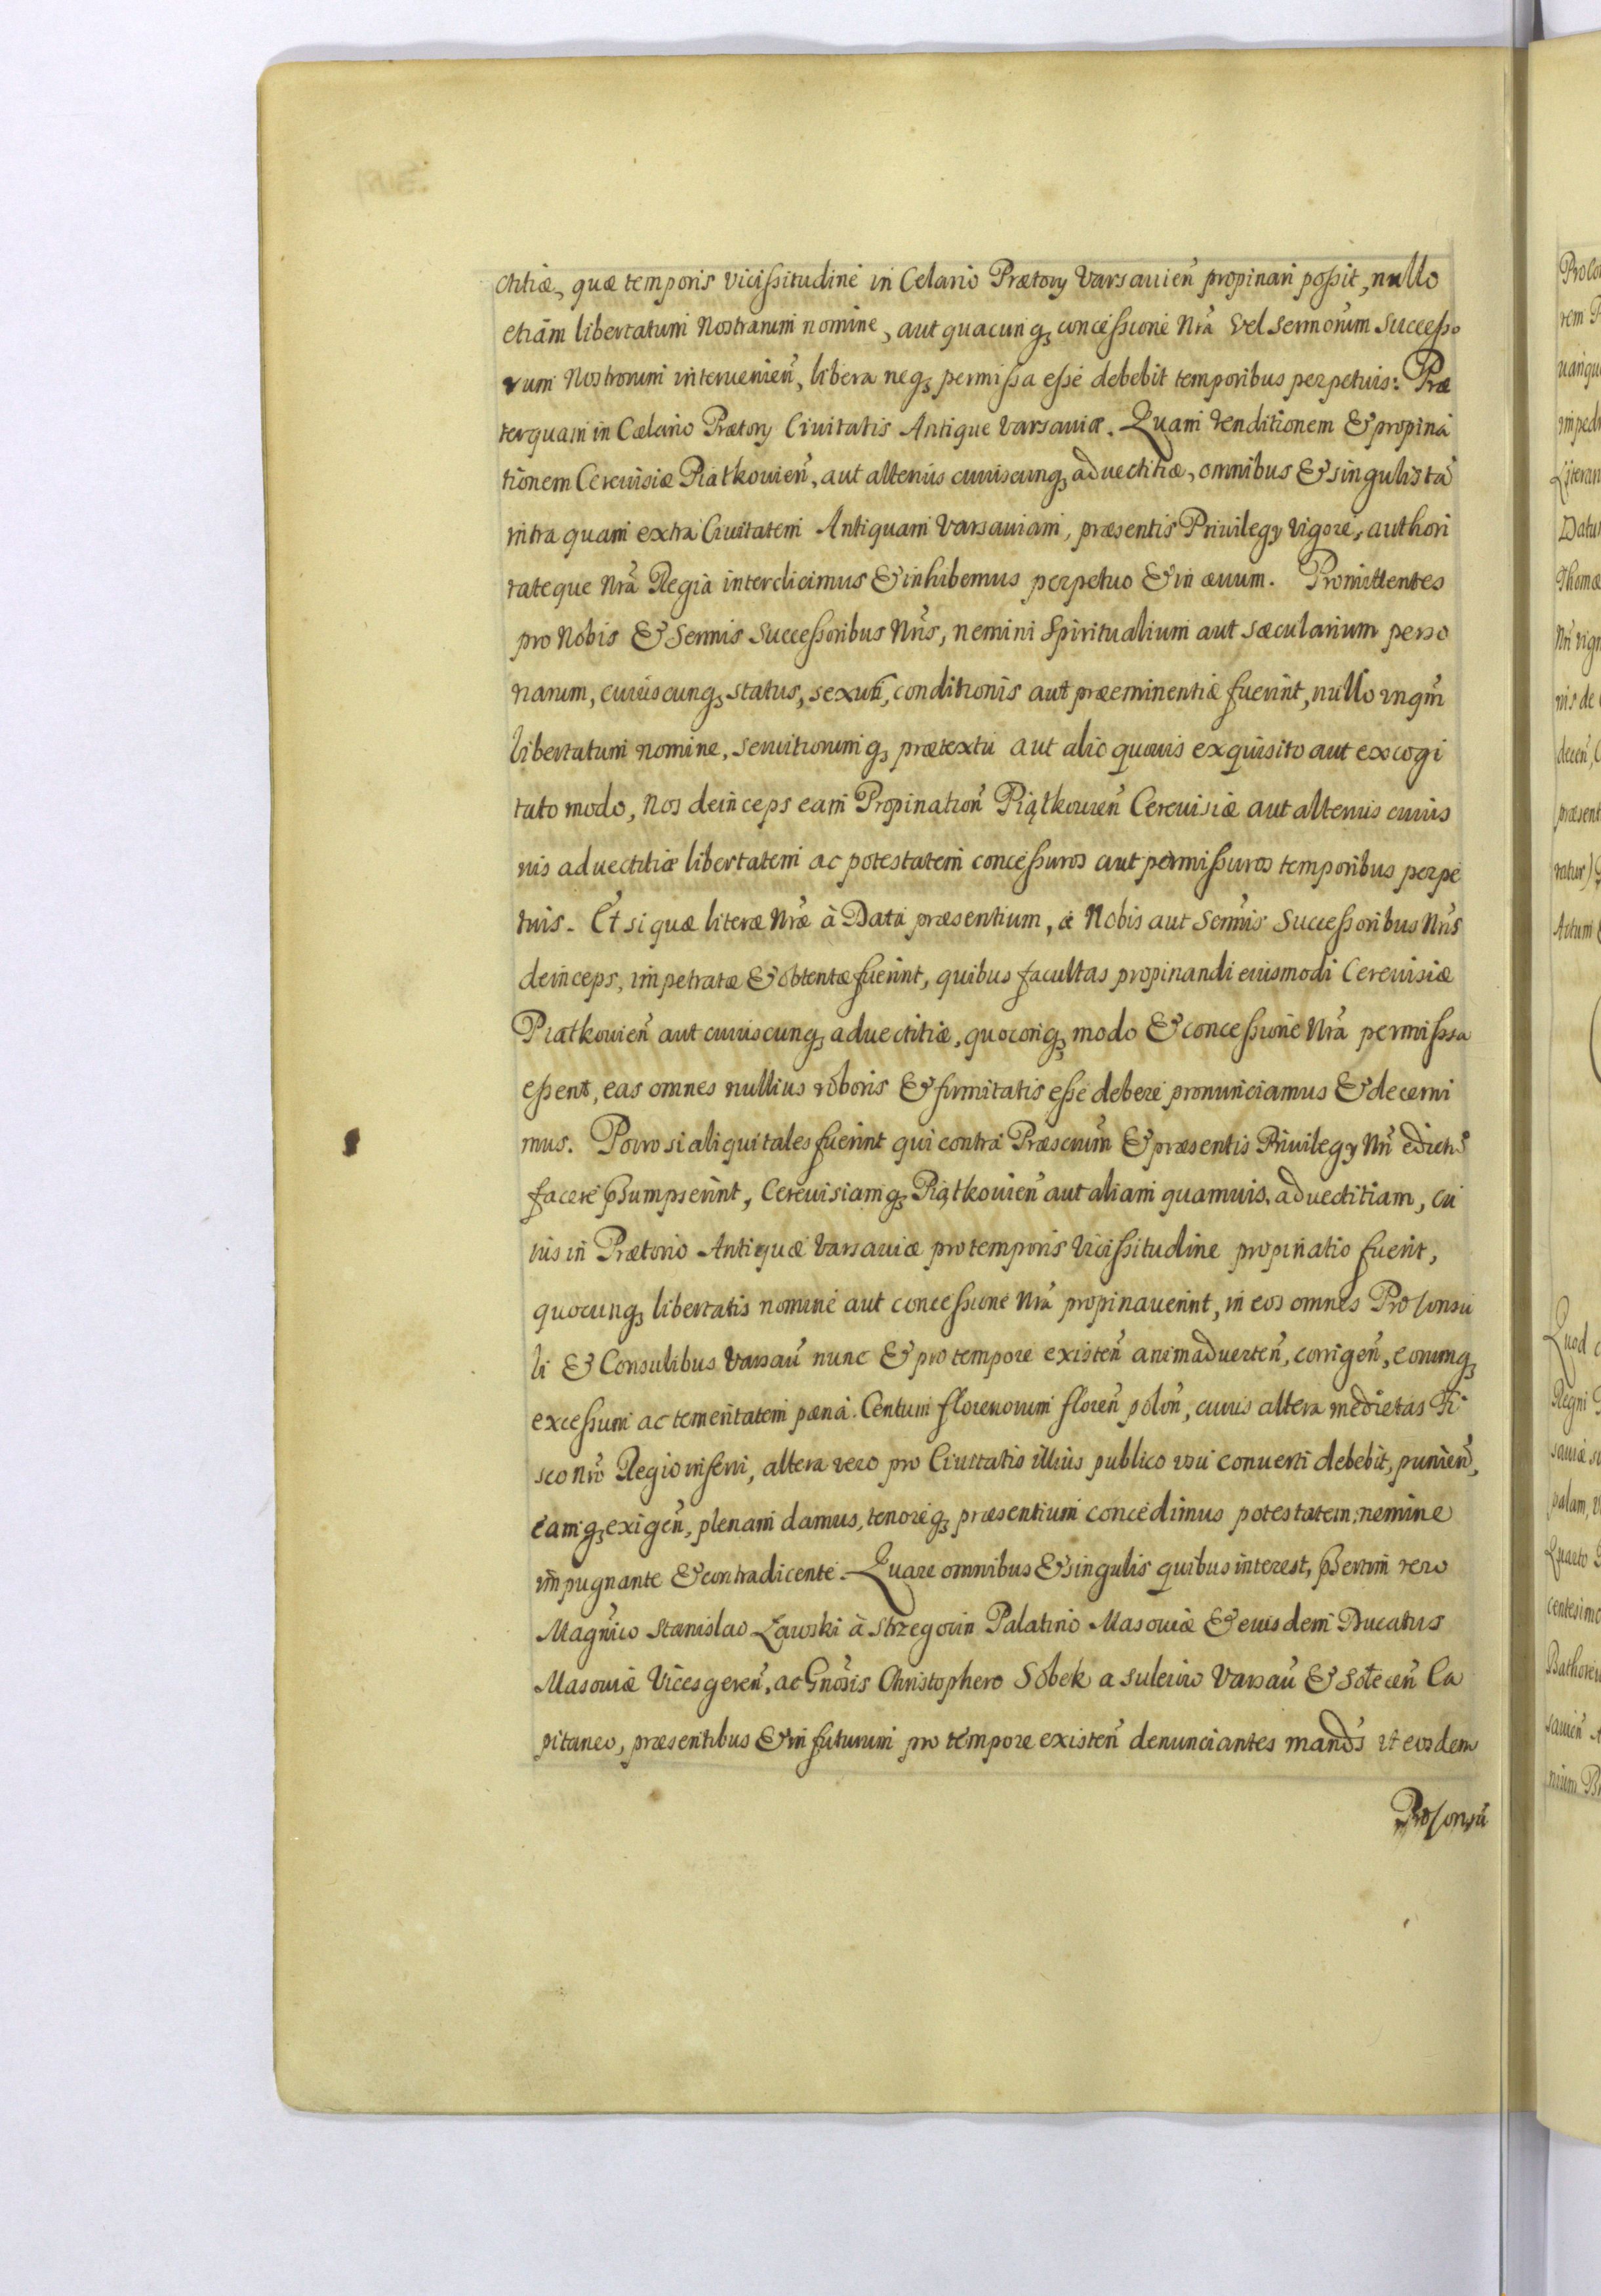 ctitiæ, quæ temporis vicißitudine in Celario Prætorÿ Varsauien̄ propinari poßit, nullo
etiam libertatum Nostrarum nomine, aut quacunq, conceßione Nr̄a vel sermōrum Succeßo
rum Nostrorum interuenien̄, libera neq, permißa eße debebit temporibus perpetuis. Præ
terquam in Cælario Prætorÿ Ciuitatis Antique Varsauiæ. Quam venditionem & propina
tionem Cereuisiæ Piątkouien̄, aut alterius cuiuscunq, aduectitiæ, omnibus & singulis tā
intra quam extra Ciuitatem Antiquam Varsauiam, præsentis Priuilegÿ vigore, authori
tateque Nr̄a Regia interdicimus & inhibemus perpetuo & in æuum. Promittentes
pro Nobis & Sermis Succeßoribus Nr̄is, nemini Spiritualium aut sæcularium perso
narum, cuiuscunq, status, sexus, conditionis aut præeminentiæ fuerint, nullo unqm̄
libertatum nomine, seruitiorumq, prætextu aut alio quouis exquisito aut excogi
tato modo, Nos deinceps eam Propination̄ Piątkouien̄ Cereuisiæ aut alterius cuius
uis aduectitiæ libertatem ac potestatem conceßuros aut permißuros temporibus perpe
tuis. Et si quæ literæ Nr̄æ à Data præsentium, à Nobis aut Serm̄is Succeßoribus Nr̄is
deinceps, impetratæ & obtentæ fuerint, quibus facultas propinandi eiusmodi Cereuisiæ
Piatkouien̄ aut cuiuscunq, aduectitiæ, quocunq, modo & conceßione Nr̄a permißa
eßent, eas omnes nullius roboris & firmitatis eße debere pronunciamus & decerni
mus. Porro si aliqui tales fuerint qui contra Præscrium̄ & præsentis Priuilegÿ Nr̄i edictū
facere p̄sumpserint, Cereuisiamq, Piątkouien̄ aut aliam quamuis, aduectitiam, cu
ius in Prætorio Antiquæ Varsauiæ pro temporis vicißitudine propinatio fuerit,
quocunq, libertatis nomine aut conceßione Nr̄a propinauerint, in eos omnes ProConsu
li & Consulibus Varsau̅ nunc & pro tempore existen̄ animaduerten̄, corrigen̄, eorumq,
exceßum ac temeritatem pæna. Centum florenorum floren̄ polon̄, cuius altera medietas Fi
sco Nr̄o Regio inferri, altera vero pro Ciuitatis illius publico usu conuerti debebit, punien̄,
eamq, exigen̄, plenam damus, tenoreq, præsentium concedimus potestatem, nemine
impugnante & contradicente. Quare omnibus & singulis quibus interest, p̄sertim vero
Magn̄ico Stanislao Ławski à Strzegocin Palatino Masouiæ & eiusdem Ducatus
Masouiæ Vicesgeren̄, ac Gn̄osis Christophero Sobek a Suleiow Varsau̅ & Sotecen̄ Ca
pitaneo, præsentibus & in futurum pro tempore existen̄ denunciantes mandūs ut eosdem
ProConsu